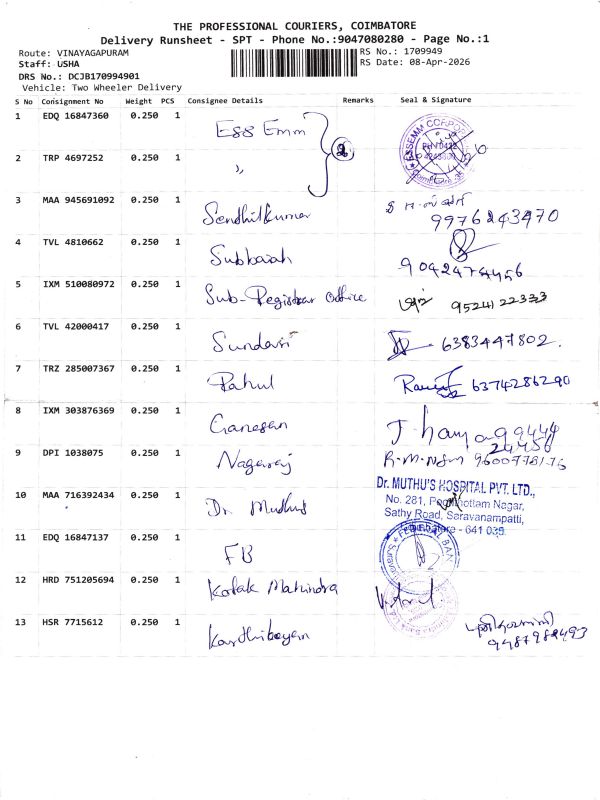 THE PROFESSIONAL COURIERS, COIMBATORE
Delivery Runsheet - SPT - Phone No.:9047080280 - Page No.:1
Route: VINAYAGAPURAM
RS No.: 1709949
Staff: USHA
RS Date: 08-Apr-2026
DRS No.: DCJB170994901
Vehicle: Two Wheeler Delivery
S No Consignment No Weight PCS Consignee Details Remarks Seal & Signature
1 EDQ 16847360 0.250 1 Ess Emm
2 TRP 4697252 0.250 1 ,, 2
3 MAA 945691092 0.250 1 Sendhilkumar
9976243470
4 TVL 4810662 0.250 1 Subbaiah
5 IXM 510080972 0.250 1 Sub-Registrar Office 9524122333
6 TVL 42000417 0.250 1 Sundari 6383447802.
7 TRZ 285007367 0.250 1 Rahul 6374286290
8 IXM 303876369 0.250 1 Ganesan
9 DPI 1038075 0.250 1 Nagaraj 9600778176
10 MAA 716392434 0.250 1 Dr. Muthus
Dr. MUTHU'S HOSPITAL PVT. LTD.,
No. 281, Nagar,
Sathy Road, Saravanampatti,
- 641 035.
11 EDQ 16847137 0.250 1 FB
FEDERAL BAN
12 HRD 751205694 0.250 1 Kotak Mahindra
13 HSR 7715612 0.250 1 Karthikeyan
9487982493